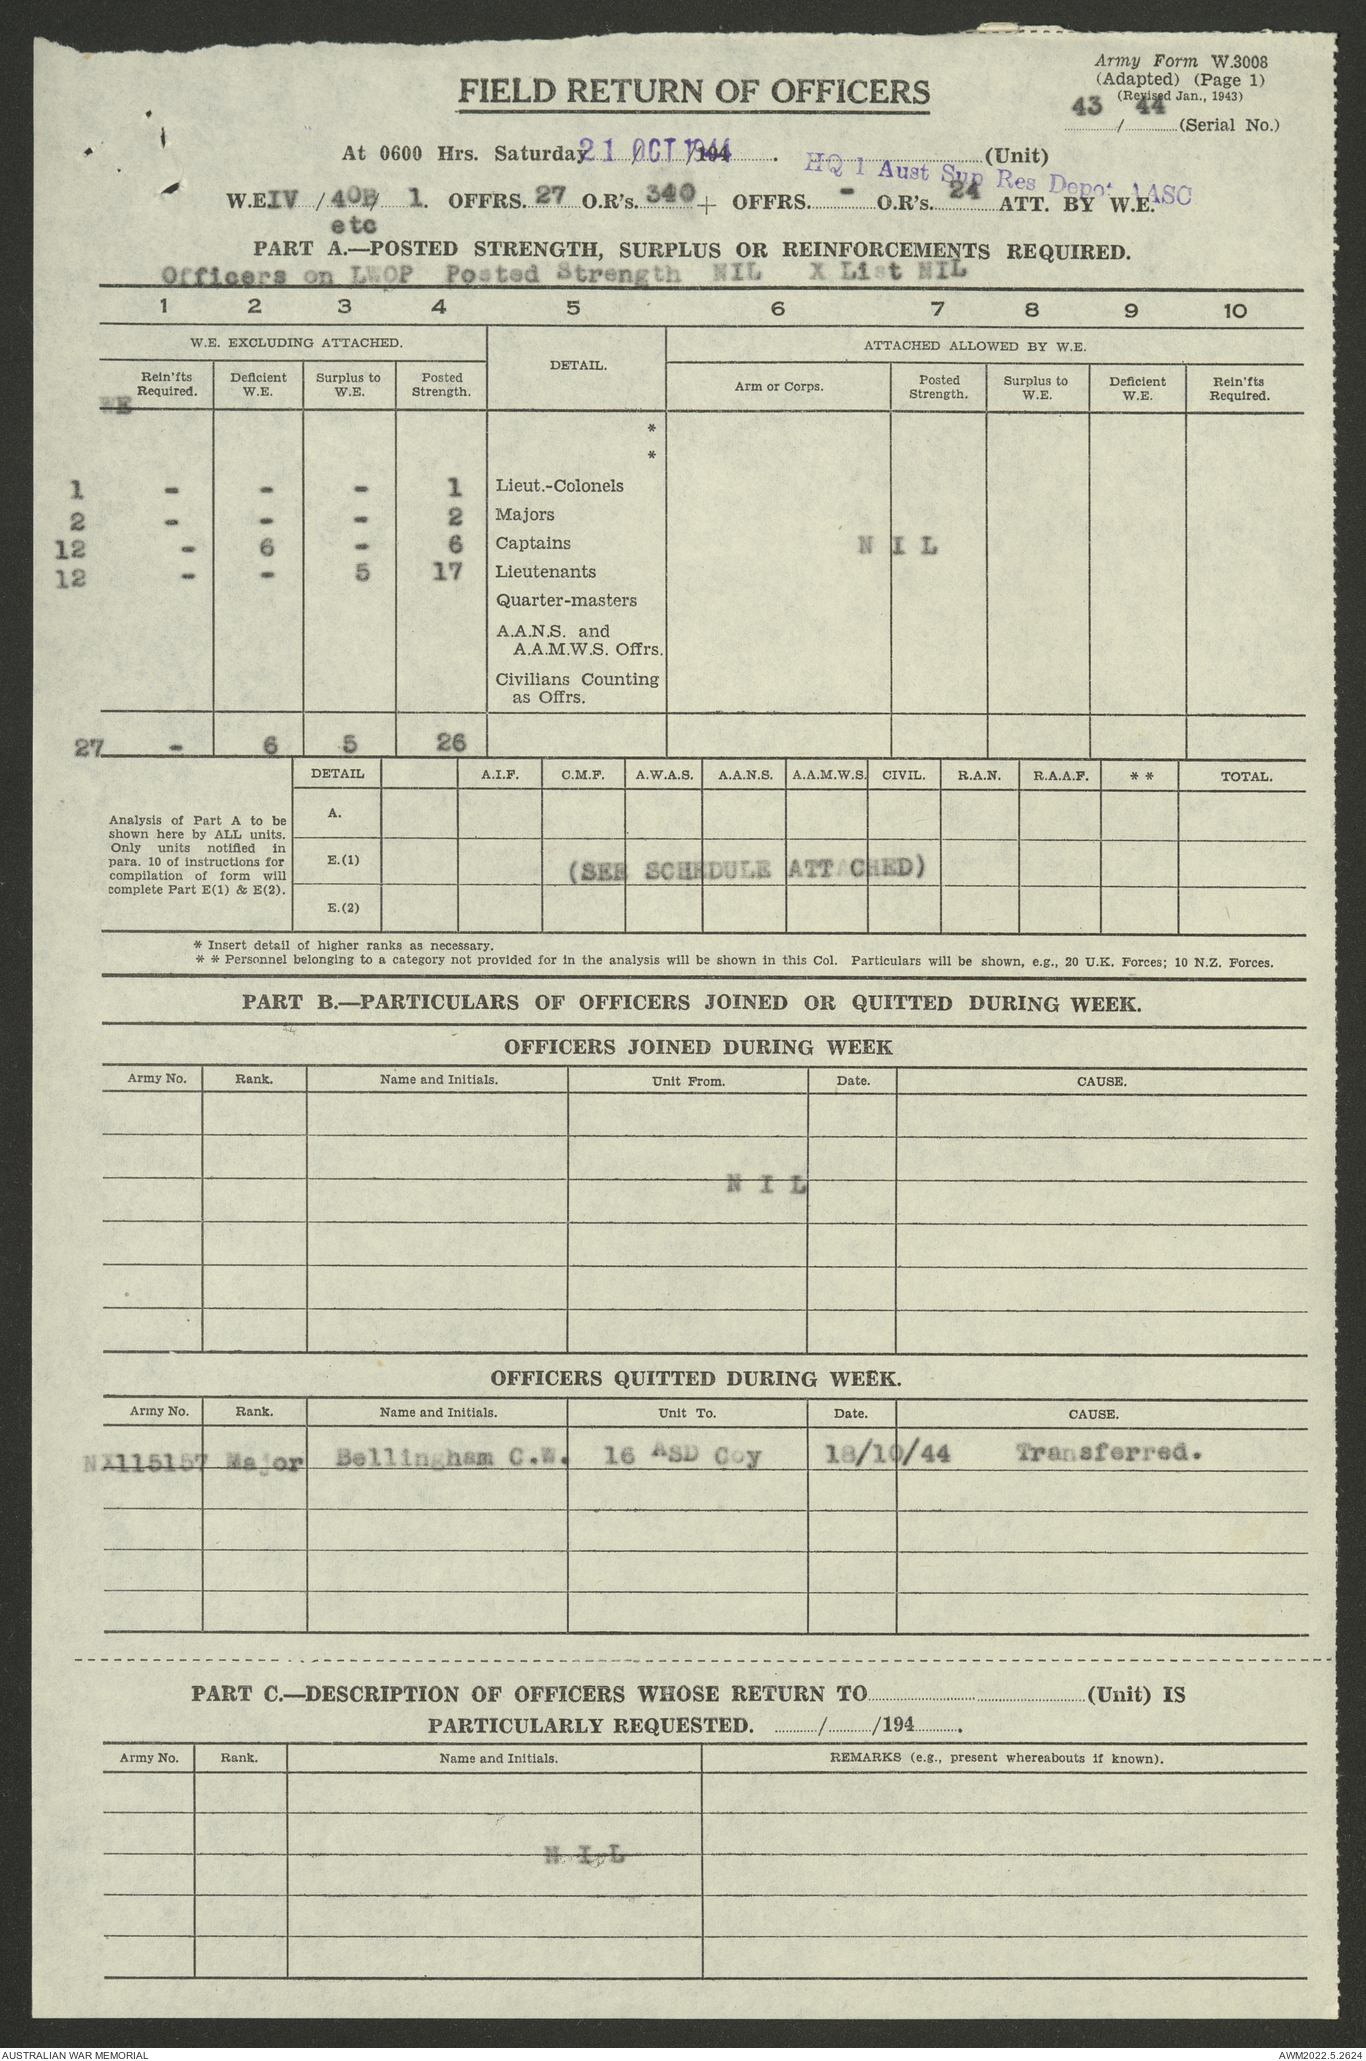 Army Form W.3008
(Adapted) (Page 1)
(Revised Jan., 1943)
43 / 44 (Serial No.)
FIELD RETURN OF OFFICERS
At 0600 Hrs. Saturday 21 OCT 1944 /194 . HQ 1 Aust Sup Res Depot AASC (Unit)
W.E. IV / 40B / 1. OFFRS. 27 O.R's. 340 + OFFRS. - O.R's. 24 ATT. BY W.E.
etc
PART A.—POSTED STRENGTH, SURPLUS OR REINFORCEMENTS REQUIRED.
Officers on LWOP Posted Strength NIL X List NIL
1 2 3 4 5 6 7 8 9 10
W.E. EXCLUDING ATTACHED. DETAIL. ATTACHED ALLOWED BY W.E.
Rein'fts Required. Deficient W.E. Surplus to W.E. Posted Strength. Arm or Corps. Posted Strength. Surplus to W.E. Deficient W.E. Rein'fts Required.
WE
*
*
1 - - - 1 Lieut.-Colonels
2 - - - 2 Majors
12 - 6 - 6 Captains N I L
12 - - 5 17 Lieutenants
Quarter-masters
A.A.N.S. and
A.A.M.W.S. Offrs.
Civilians Counting
as Offrs.
27 - 6 5 26
DETAIL A.I.F. C.M.F. A.W.A.S. A.A.N.S. A.A.M.W.S. CIVIL. R.A.N. R.A.A.F. * * TOTAL.
Analysis of Part A to be
shown here by ALL units.
Only units notified in
para. 10 of instructions for
compilation of form will
complete Part E(1) & E(2).
A.
E.(1) (SEE SCHEDULE ATTACHED)
E.(2)
* Insert detail of higher ranks as necessary.
* * Personnel belonging to a category not provided for in the analysis will be shown in this Col. Particulars will be shown, e.g., 20 U.K. Forces; 10 N.Z. Forces.
PART B.—PARTICULARS OF OFFICERS JOINED OR QUITTED DURING WEEK.
OFFICERS JOINED DURING WEEK
Army No. Rank. Name and Initials. Unit From. Date. CAUSE.
N I L
OFFICERS QUITTED DURING WEEK.
Army No. Rank. Name and Initials. Unit To. Date. CAUSE.
NX115157 Major Bellingham C.W. 16 ASD Coy 18/10/44 Transferred.
PART C.—DESCRIPTION OF OFFICERS WHOSE RETURN TO (Unit) IS
PARTICULARLY REQUESTED. / /194 .
Army No. Rank. Name and Initials. REMARKS (e.g., present whereabouts if known).
N I L
AUSTRALIAN WAR MEMORIAL AWM2022.5.2624